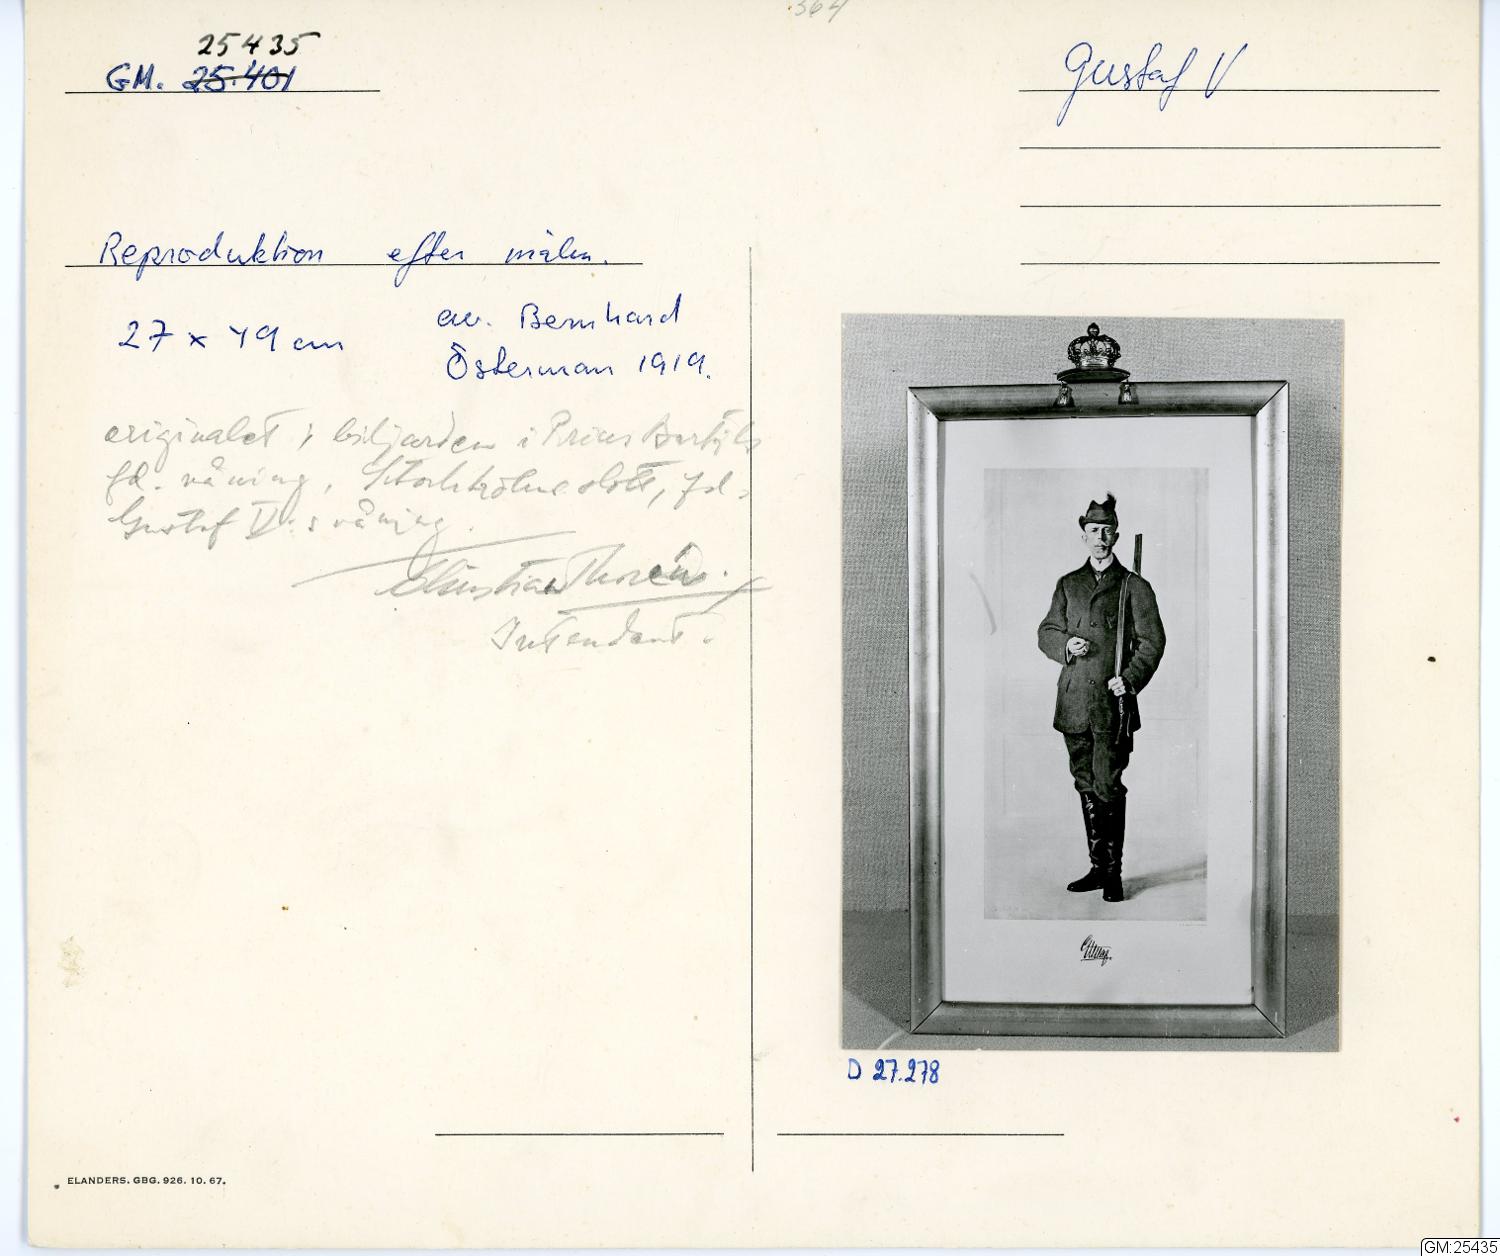 364
25435
GM. 25.401
Gustaf V
Reproduktion efter måln.
27 x 49 cm
av. Bernhard
Österman 1919.
originalet i biljarden i Prins Bertils
fd. våning, Stockholms slott, fd.
Gustaf V:s våning.
Christian Thorén.
Intendent.
Gustaf
D 27.278
ELANDERS. GBG. 926. 10. 67.
GM:25435